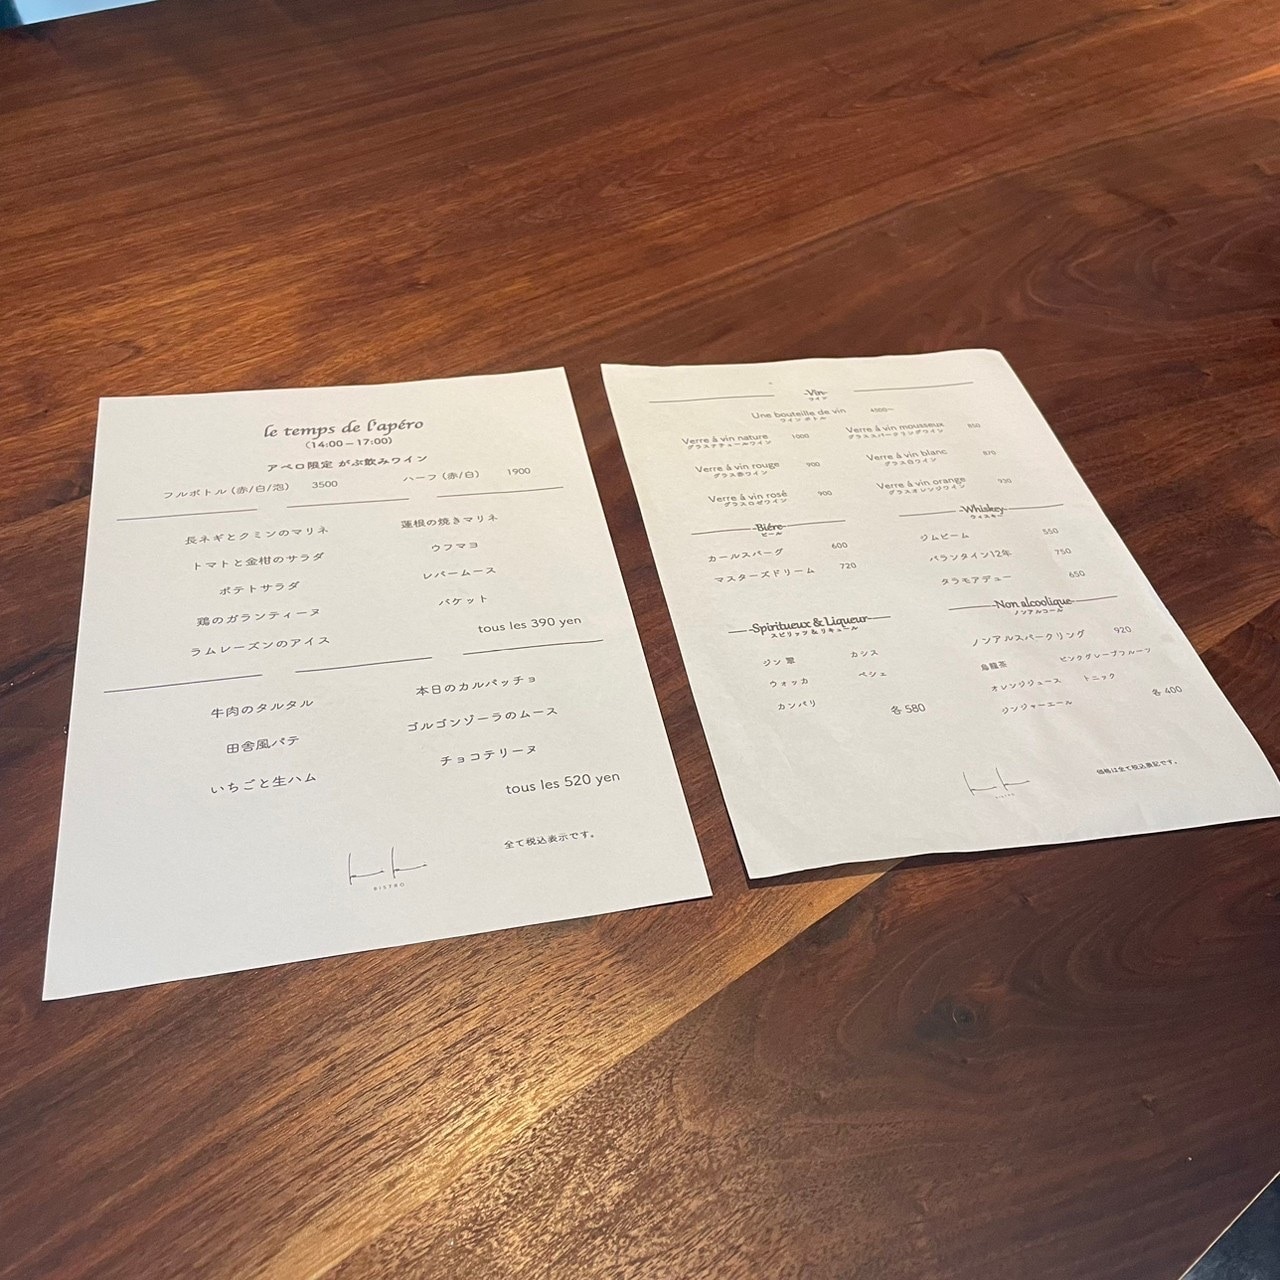 le temps de l'apéro
(14:00－17:00)
アペロ限定 がぶ飲みワイン
フルボトル (赤/白/泡) 3500 ハーフ (赤/白) 1900
長ネギとクミンのマリネ 蓮根の焼きマリネ
トマトと金柑のサラダ ウフマヨ
ポテトサラダ レバームース
鶏のガランティーヌ バケット
ラムレーズンのアイス tous les 390 yen
牛肉のタルタル 本日のカルパッチョ
田舎風パテ ゴルゴンゾーラのムース
いちごと生ハム チョコテリーヌ
tous les 520 yen
全て税込表示です。
BISTRO
Vin
ワイン
Une bouteille de vin 4500〜
ワインボトル
Verre á vin nature 1000 Verre á vin mousseux 850
グラスナチュールワイン グラススパークリングワイン
Verre á vin rouge 900 Verre á vin blanc 870
グラス赤ワイン グラス白ワイン
Verre á vin rosé 900 Verre á vin orange 920
グラスロゼワイン グラスオレンジワイン
Biére
ビール
カールスバーグ 600
マスターズドリーム 720
Whiskey
ウィスキー
ジムビーム 550
バランタイン12年 750
タラモアデュー 650
Spiritueux & Liqueur
スピリッツ & リキュール
ジン 翠 カシス
ウォッカ ペシェ
カンパリ 各 580
Non alcoolique
ノンアルコール
ノンアルスパークリング 920
烏龍茶 ピンクグレープフルーツ
オレンジジュース トニック
ジンジャーエール 各 400
価格は全て税込表記です。
BISTRO